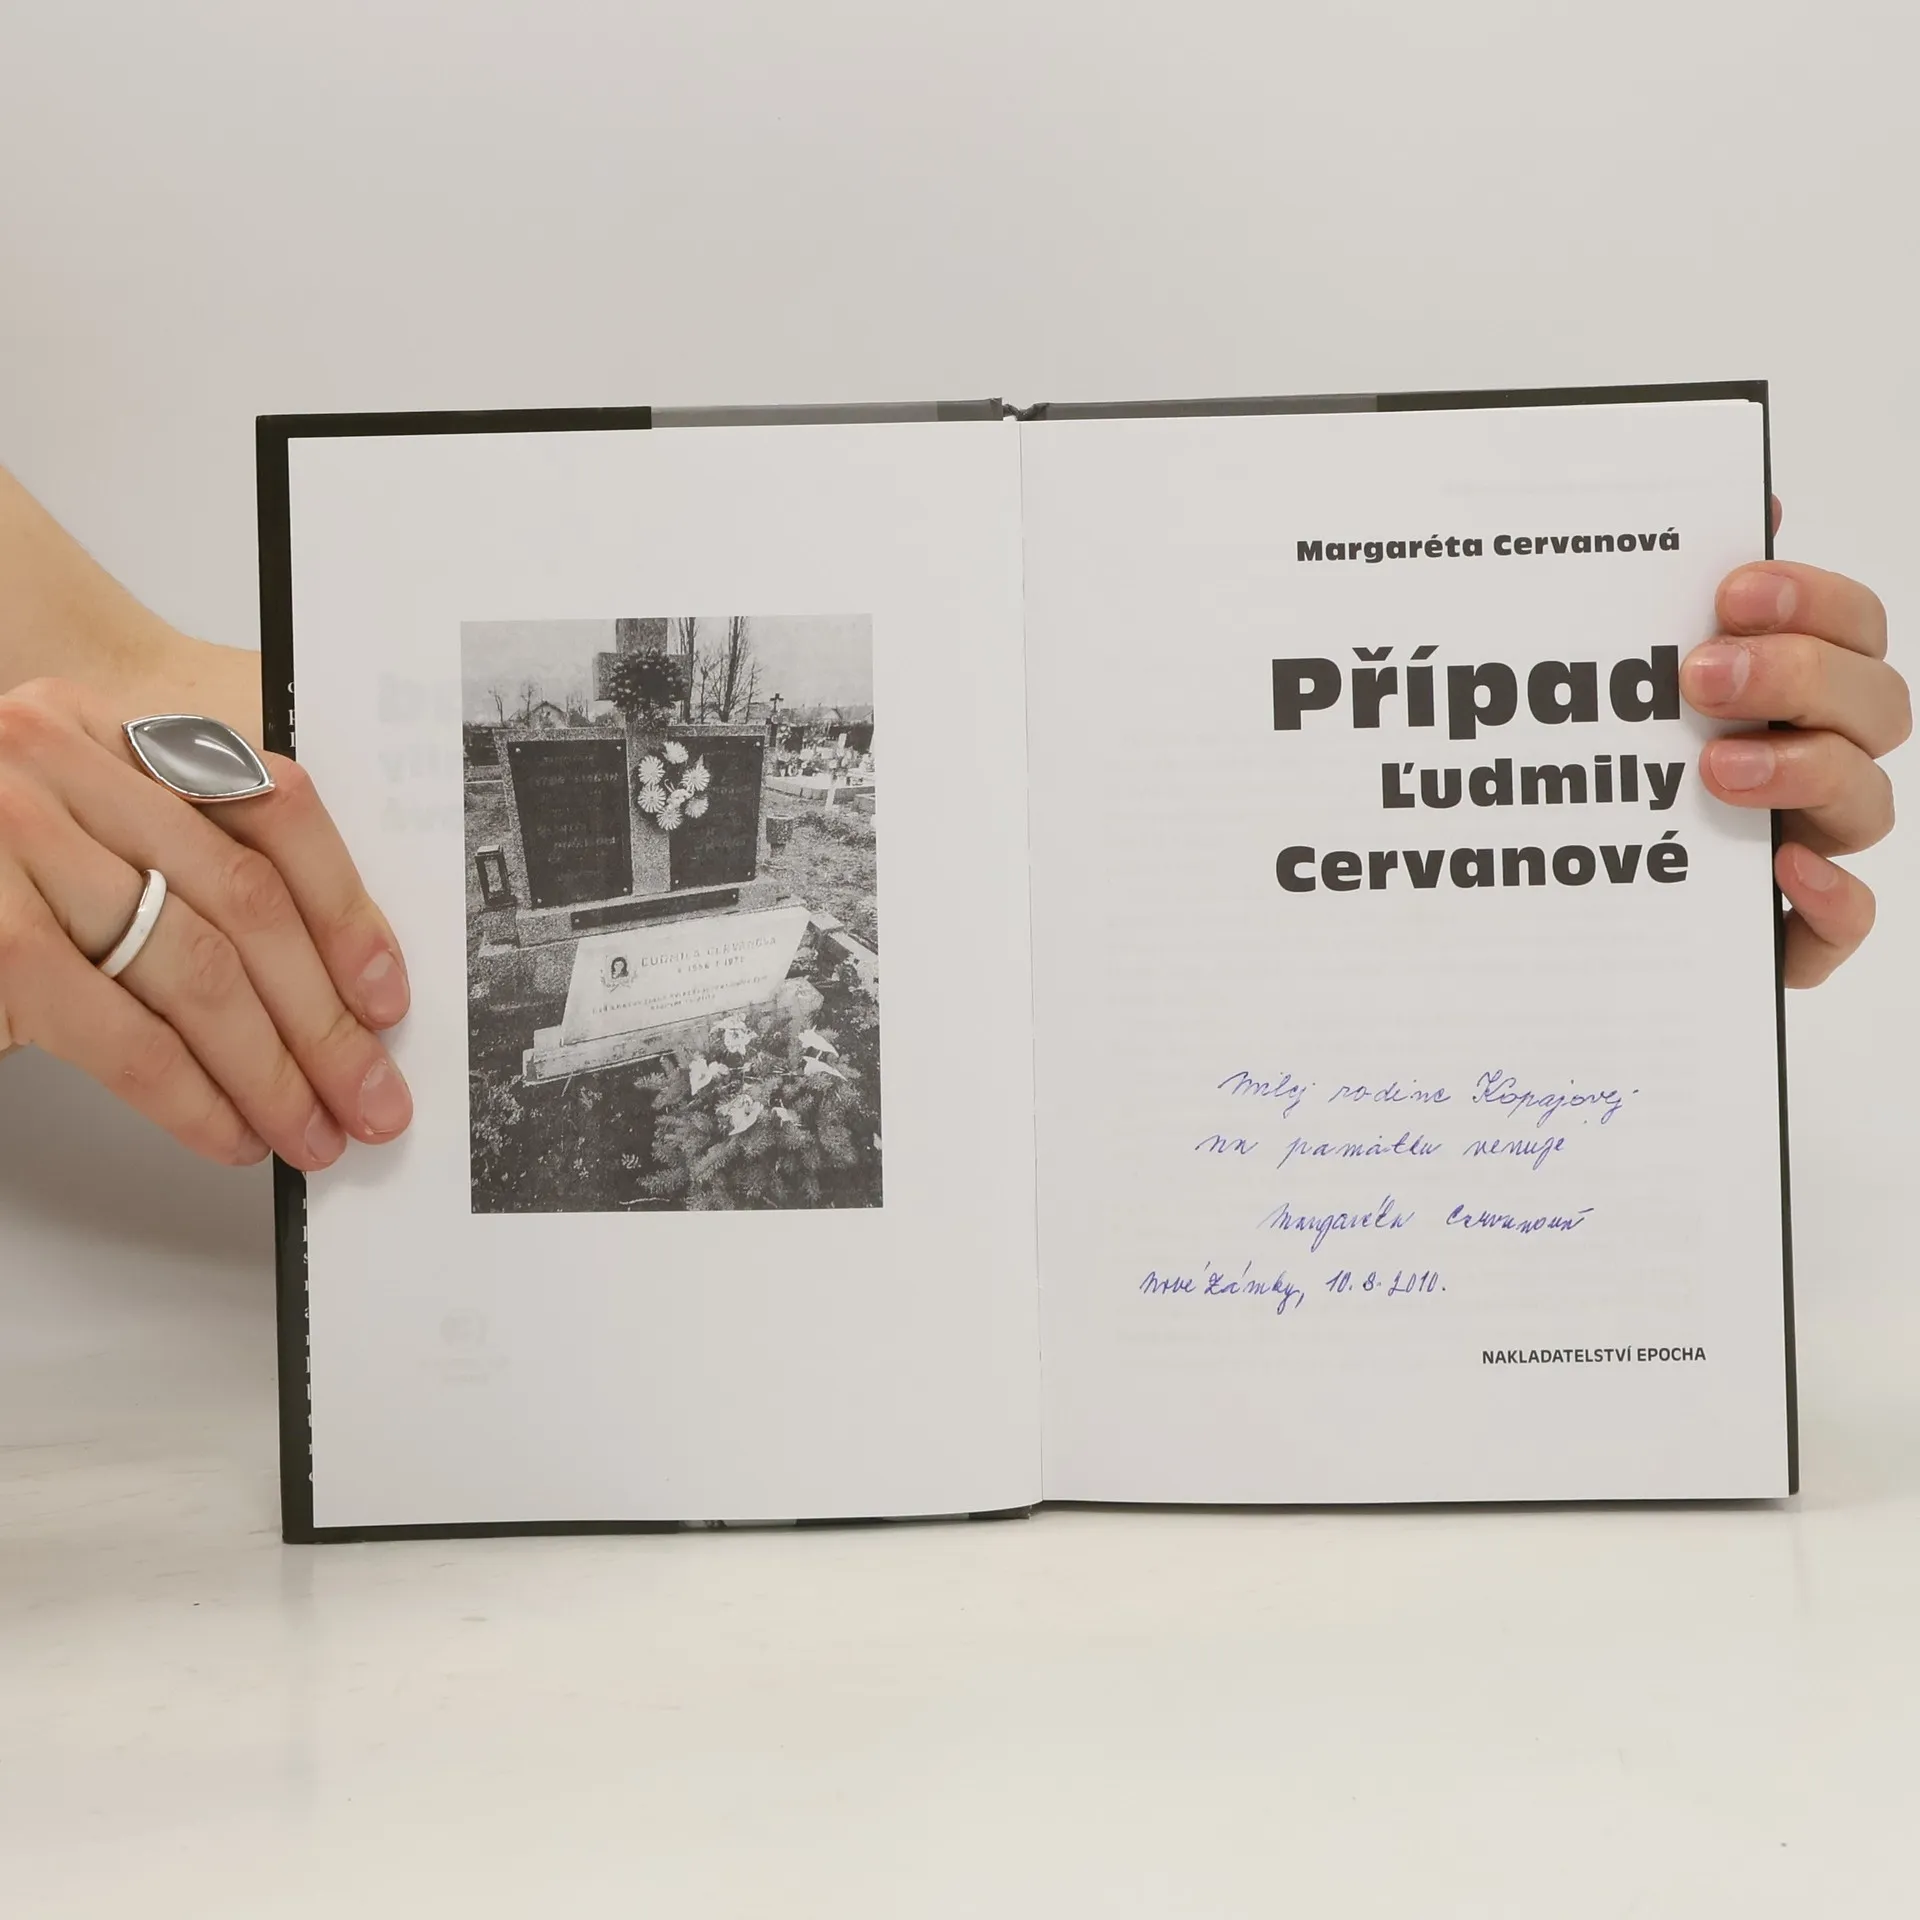 ĽUDMILA CERVANOVÁ
Margaréta Cervanová
Případ
Ľudmily
Cervanové
Milej rodine Kopajovej
na pamiatku venuje
Margaréta Cervanová
Nové Zámky, 10. 8. 2010.
NAKLADATELSTVÍ EPOCHA